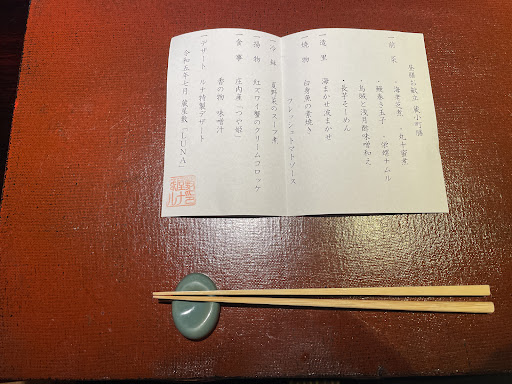 お献立 蔵小町膳
一 前 菜 ・海老芝煮 ・丸十蜜煮
・鰻巻き玉子 ・栄螺ナムル
・烏賊と浅月酢味噌和え
・長芋そーめん
一 造 里 海まかせ波まかせ
一 焼 物 白身魚の素焼き
フレッシュトマトソース
一 冷 鉢 夏野菜の
一 揚 物 紅ズワイ蟹のクリームコロッケ
一 食 事 庄内産「つや姫」
香の物 味噌汁
一 デザート ルナ特製デザート
令和五年七月 蔵屋敷「LUNA」